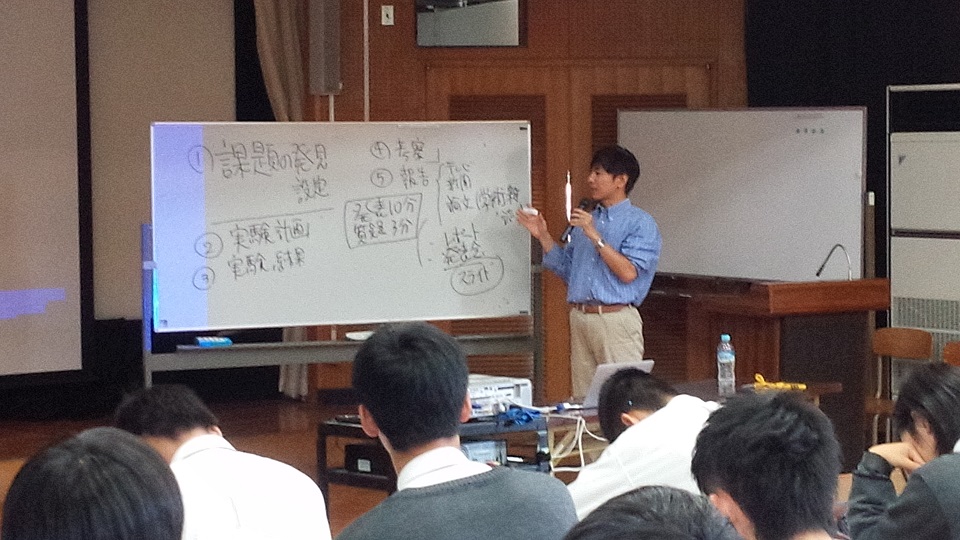 ① 課題の発見
設定
② 実験計画
③ 実験、結果
④ 考察
⑤ 報告
発表10分
質疑3分
テレビ
新聞
論文(学術雑
レポート
発表会
スライド